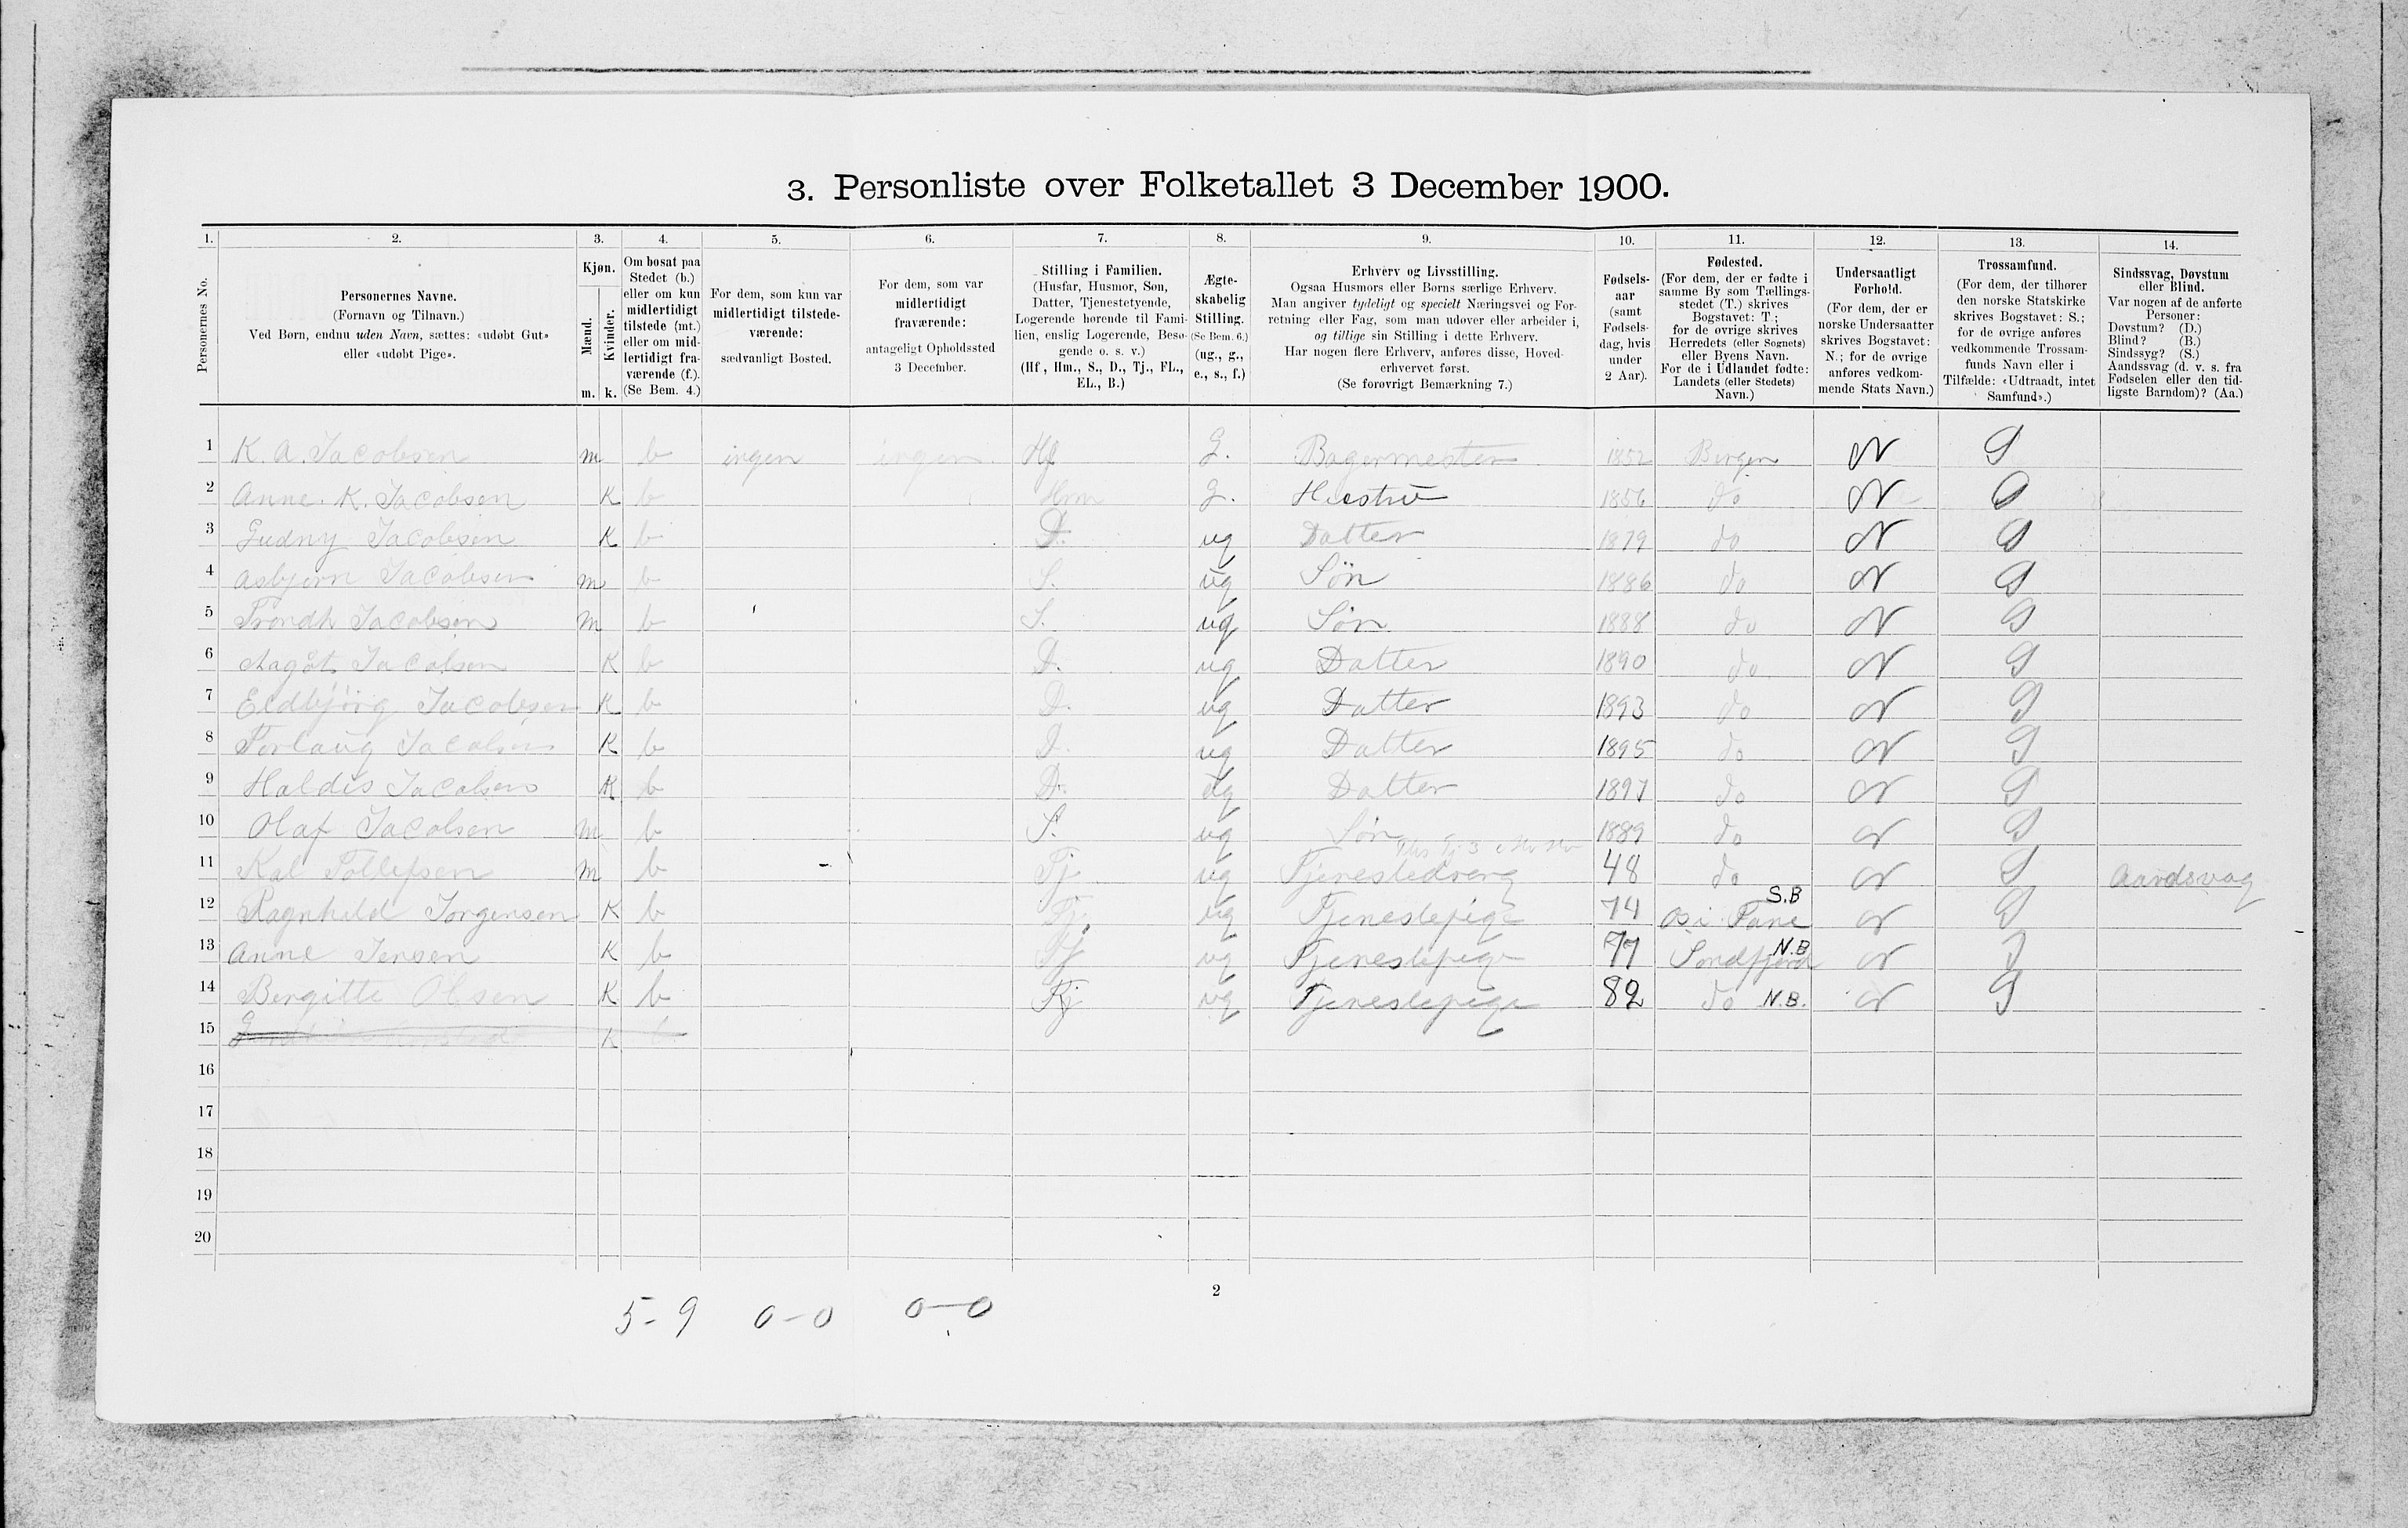 3. Personliste over Folketallet 3 December 1900.
1. 2. 3. 4. 5. 6. 7. 8. 9. 10. 11. 12. 13. 14.
Personernes No.
Personernes Navne.
(Fornavn og Tilnavn.)
Ved Børn, endnu uden Navn, sættes: «udøbt Gut»
eller «udøbt Pige».
Kjøn.
Mænd.
Kvinder.
m. k.
Om bosat paa
Stedet (b.)
eller om kun
midlertidigt
tilstede (mt.)
eller om mid-
lertidigt fra-
værende (f.).
(Se Bem. 4.)
For dem, som kun var
midlertidigt tilstede-
værende:
sædvanligt Bosted.
For dem, som var
midlertidigt
fraværende:
antageligt Opholdssted
3 December.
Stilling i Familien.
(Husfar, Husmor, Søn,
Datter, Tjenestetyende,
Logerende hørende til Fami-
lien, enslig Logerende, Besø-
gende o. s. v.)
(Hf, Hm., S., D., Tj., FL.,
EL., B.)
Ægte-
skabelig
Stilling.
(Se Bem. 6.)
(ug., g.,
e., s., f.)
Erhverv og Livsstilling.
Ogsaa Husmors eller Børns særlige Erhverv.
Man angiver tydeligt og specielt Næringsvei og For-
retning eller Fag, som man udøver eller arbeider i,
og tillige sin Stilling i dette Erhverv.
Har nogen flere Erhverv, anføres disse, Hoved-
erhvervet først.
(Se forøvrigt Bemærkning 7.)
Fødsels-
aar
(samt
Fødsels-
dag, hvis
under
2 Aar).
Fødested.
(For dem, der er fødte i
samme By som Tællings-
stedet (T.) skrives
Bogstavet: T;
for de øvrige skrives
Herredets (eller Sognets)
eller Byens Navn.
For de i Udlandet fødte:
Landets (eller Stedets)
Navn.)
Undersaatligt
Forhold.
(For dem, der er
norske Undersaatter
skrives Bogstavet:
N.; for de øvrige
anføres vedkom-
mende Stats Navn.)
Trossamfund.
(For dem, der tilhører
den norske Statskirke
skrives Bogstavet: S.;
for de øvrige anføres
vedkommende Trossam-
funds Navn eller i
Tilfælde: «Udtraadt, intet
Samfund».)
Sindssvag, Døvstum
eller Blind.
Var nogen af de anførte
Personer:
Døvstum? (D.)
Blind? (B.)
Sindssyg? (S.)
Aandssvag (d. v. s. fra
Fødselen eller den tid-
ligste Barndom)? (Aa.)
1 K. A. Jacobsen m b ingen ingen Hf G. Bagermester 1852 Bergen N S
2 Anne. K. Jacobsen K b Hm G. Hustru 1856 do N S
3 Gudny Jacobsen K b D. ug Datter 1879 do N S
4 Asbjørn Jacobsen m b S. ug Søn 1886 do N S
5 Trondh Jacobsen m b S. ug Søn 1888 do N S
6 Jacobsen K b D. ug Datter 1890 do N S
7 Eldbjörg Jacobsen K b D. ug Datter 1893 do N S
8 Torlaug Jacobsen K b D. ug Datter 1895 do N S
9 Haldis Jacobsen K b D. ug Datter 1897 do N S
10 Olaf Jacobsen m b S. ug Søn 1889 do N S
11 Kal Tollefsen m b Tj ug Tjenestedreng 48 do N S Aandsvag
12 Ragnhild Jørgensen K b Tj. ug Tjenestepige 74 Os i Fane S.B N S
13 Anne Jensen K b Tj ug Tjenestepige 77 Søndfjord N.B N S
14 Bergitte Olsen K b Tj ug Tjenestepige 82 do N.B. N S
15 K b
16
17
18
19
20
2
5-9 0-0 0-0